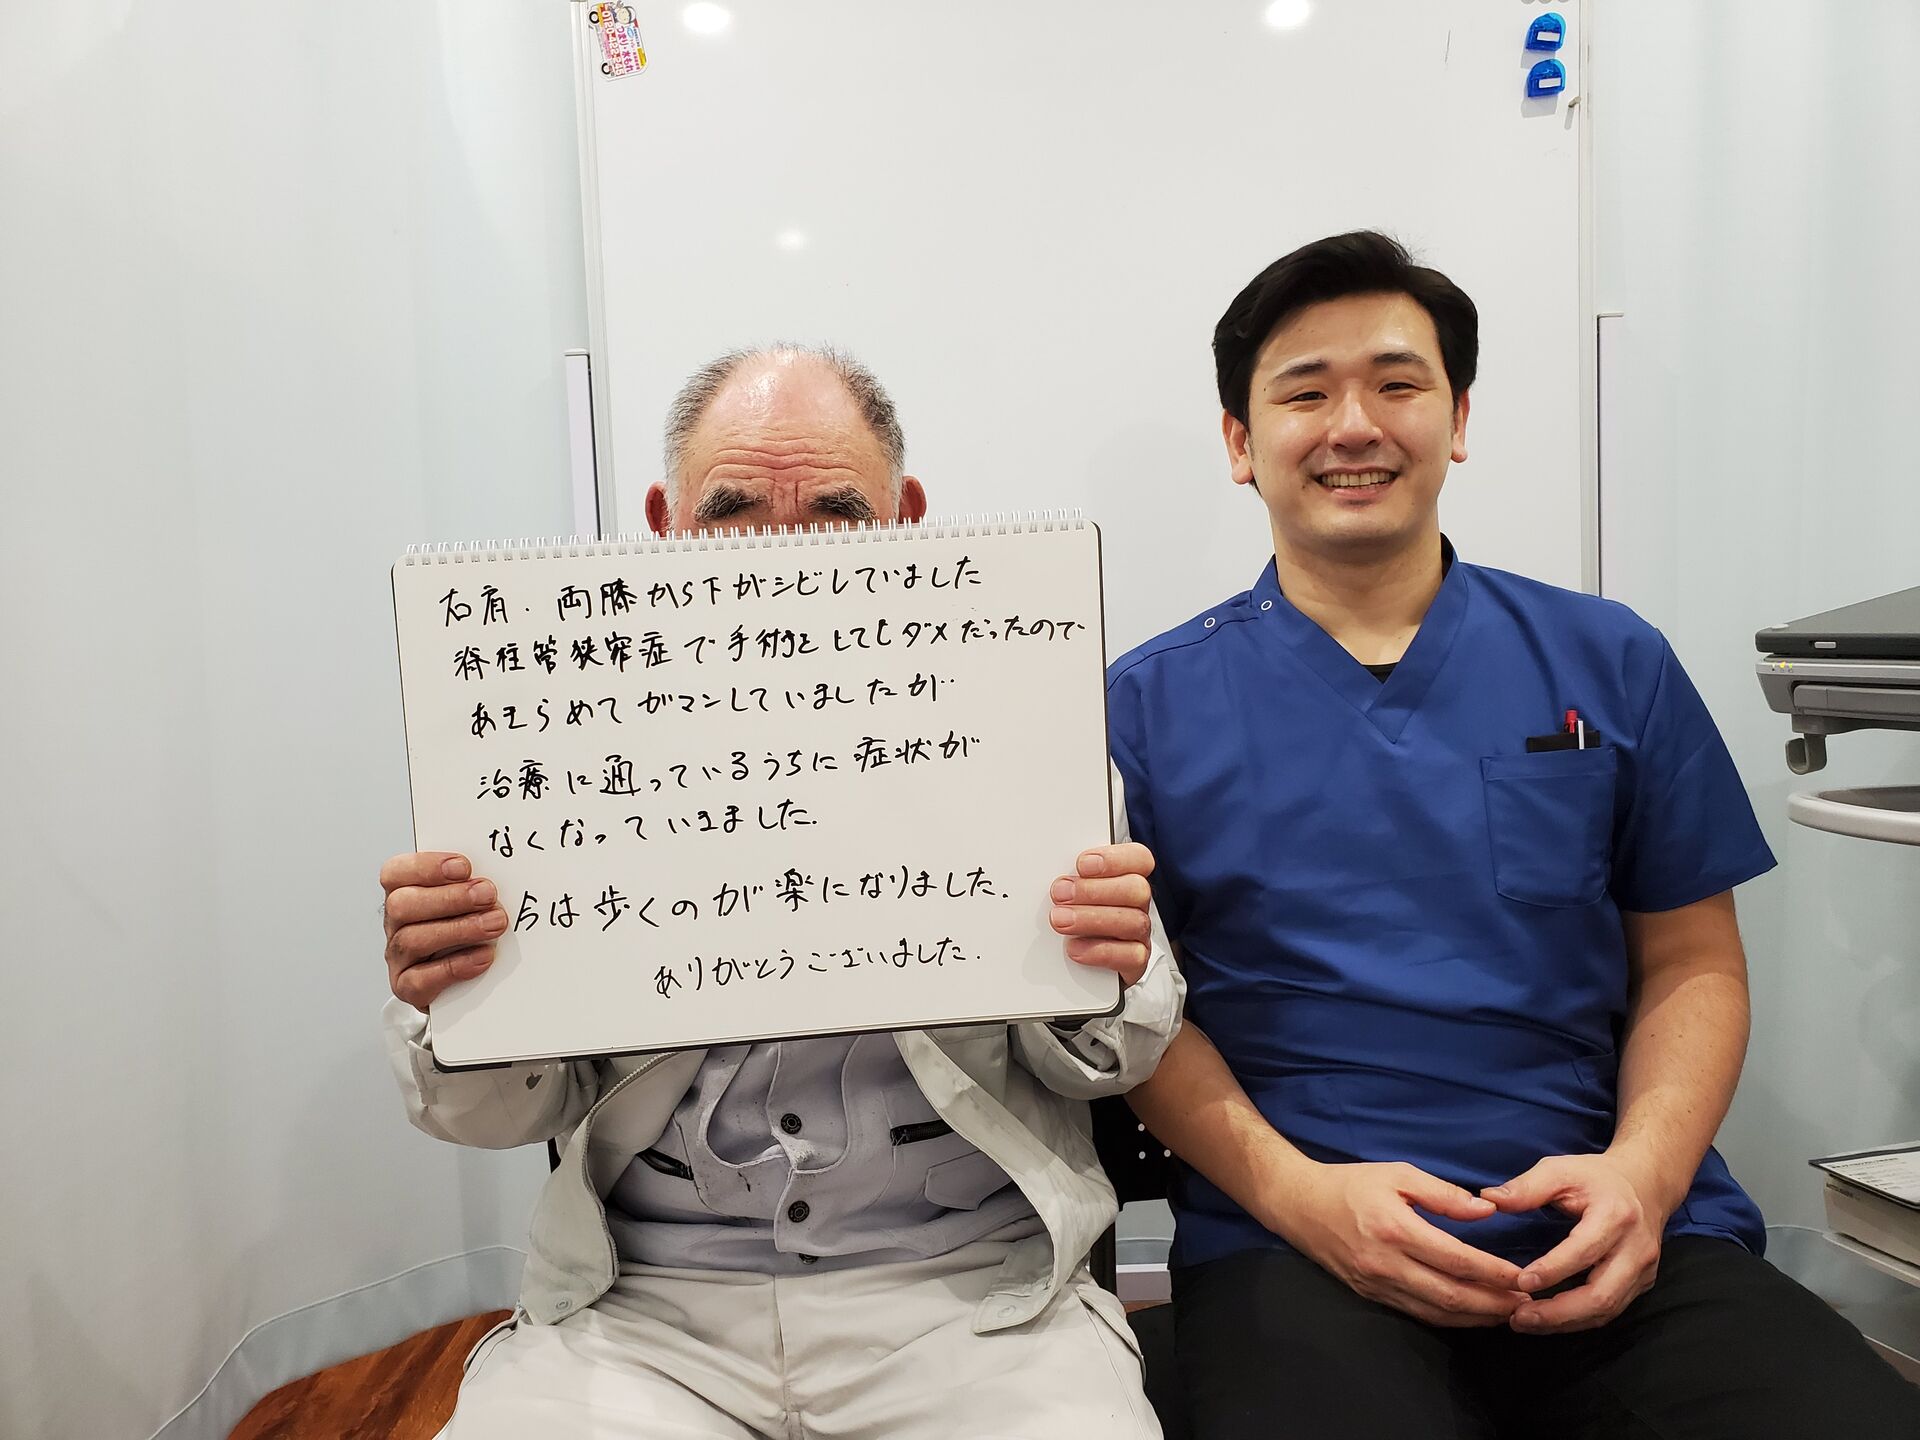 つまり水もれ
0120-422-245
右肩.両膝から下がシビレていました
脊柱管狭窄症で手術をしてもダメだったので
あきらめてガマンしていましたが
治療に通っているうちに症状が
なくなっていきました.
今は歩くのが楽になりました.
ありがとうございました.